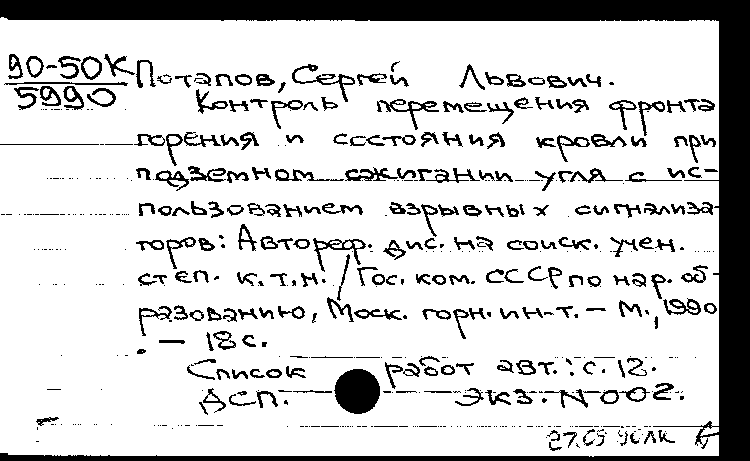 90-50К
5990
Потапов, Сергей Львович.
Контроль перемещения фронта
горения и состояния кровли при
подземном сжигании угля с ис-
пользованием взрывных сигнализа-
торов: Автореф. дис. на соиск. учен.
степ. к.т.н. / Гос. ком. СССР по нар. об-
разованию, Моск. горн. ин-т. – М., 1990
. – 18 с.
Список работ авт.: с. 18.
ДСП. Экз. N 002.
27.09 90